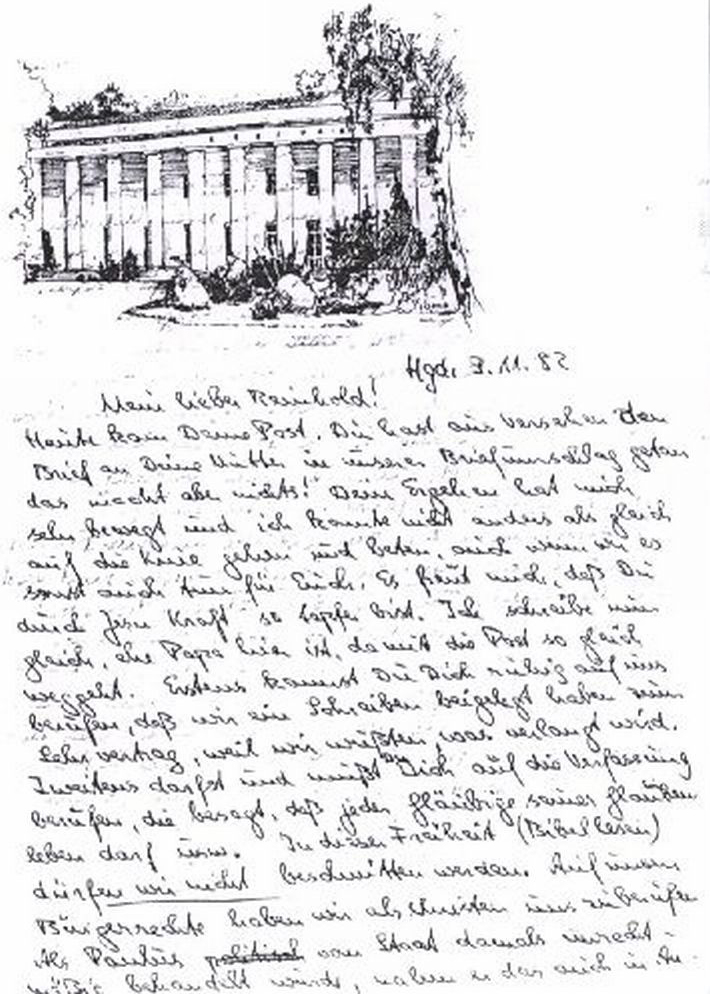 Hgd. 3.11.82
Mein lieber Reinhold!
Heute kam Deine Post. Du hast aus Versehen den
Brief an Deine Mutter in unseren Briefumschlag getan
das macht aber nichts! Dein Ergehen hat mich
sehr bewegt und ich konnte nicht anders als gleich
auf die Knie gehen und beten, auch wenn wir es
sonst auch tun für Euch. Es freut mich, daß Du
durch Jesu Kraft so tapfer bist. Ich schreibe nun
gleich, ehe Papa hier ist, damit die Post so gleich
weggeht. Erstens kannst Du Dich ruhig auf uns
berufen, daß wir ein Schreiben beigelegt haben zum
Lehrvertrag, weil wir wußten, was verlangt wird.
Zweitens darfst und mußt Du Dich auf die Verfassung
berufen, die besagt, daß jeder Gläubige seines Glaubens
leben darf usw. In dieser Freiheit (Bibellesen)
dürfen wir nicht beschnitten werden. Auf unsere
Bürgerrechte haben wir als Christen uns zu berufen
Als Paulus politisch vom Staat damals unrecht-
mäßig behandelt wurde, nahm er das auch in An-